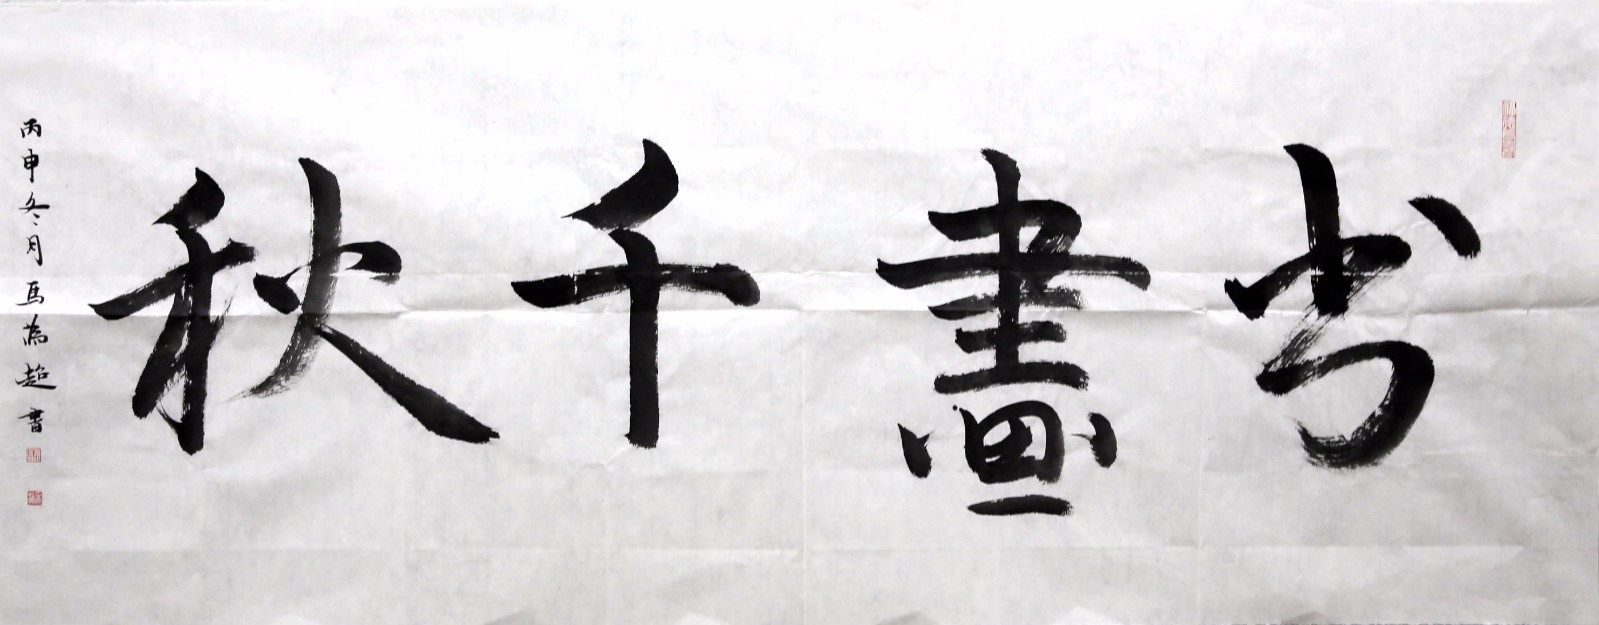 书畫千秋
丙申冬月馬為超書